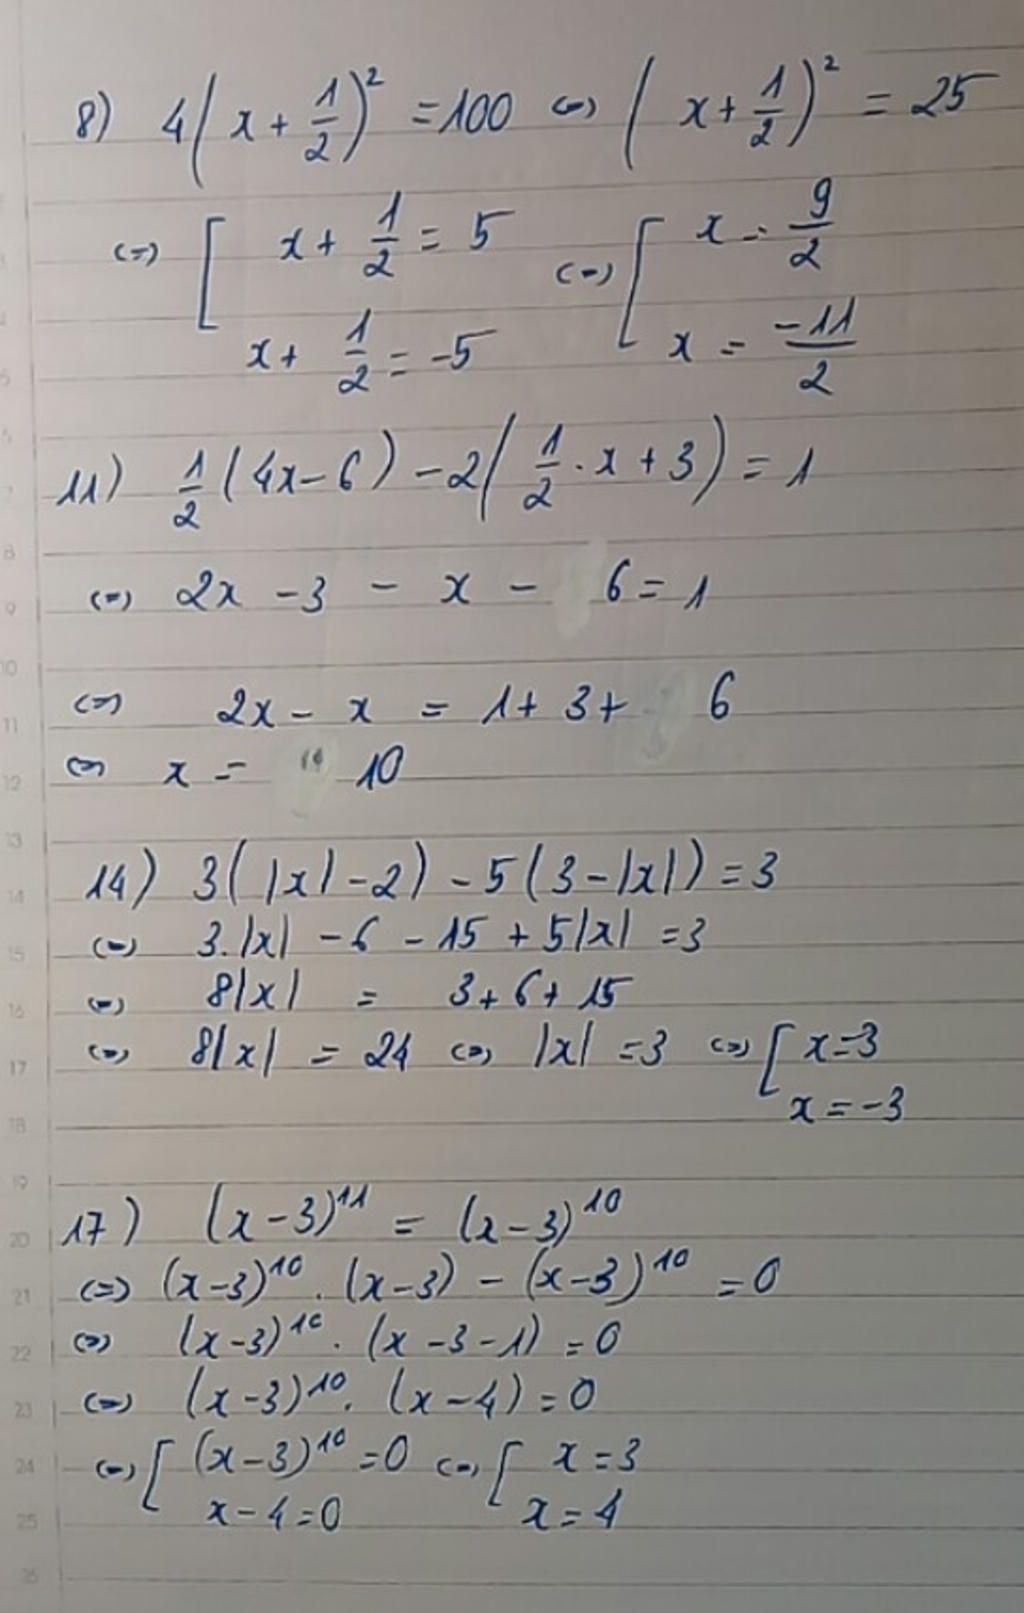 8) 4(x + 1/2)² = 100 <=> (x + 1/2)² = 25
<=> [ x + 1/2 = 5 <=> [ x = 9/2
x + 1/2 = -5 x = -11/2
11) 1/2 (4x - 6) - 2(1/2 . x + 3) = 1
<=> 2x - 3 - x - 6 = 1
<=> 2x - x = 1 + 3 + 6
<=> x = 10
14) 3(|x| - 2) - 5(3 - |x|) = 3
<=> 3.|x| - 6 - 15 + 5|x| = 3
<=> 8|x| = 3 + 6 + 15
<=> 8|x| = 24 <=> |x| = 3 <=> [ x = 3
x = -3
17) (x - 3)¹¹ = (x - 3)¹⁰
<=> (x - 3)¹⁰ . (x - 3) - (x - 3)¹⁰ = 0
<=> (x - 3)¹⁰ . (x - 3 - 1) = 0
<=> (x - 3)¹⁰ . (x - 4) = 0
<=> [ (x - 3)¹⁰ = 0 <=> [ x = 3
x - 4 = 0 x = 4